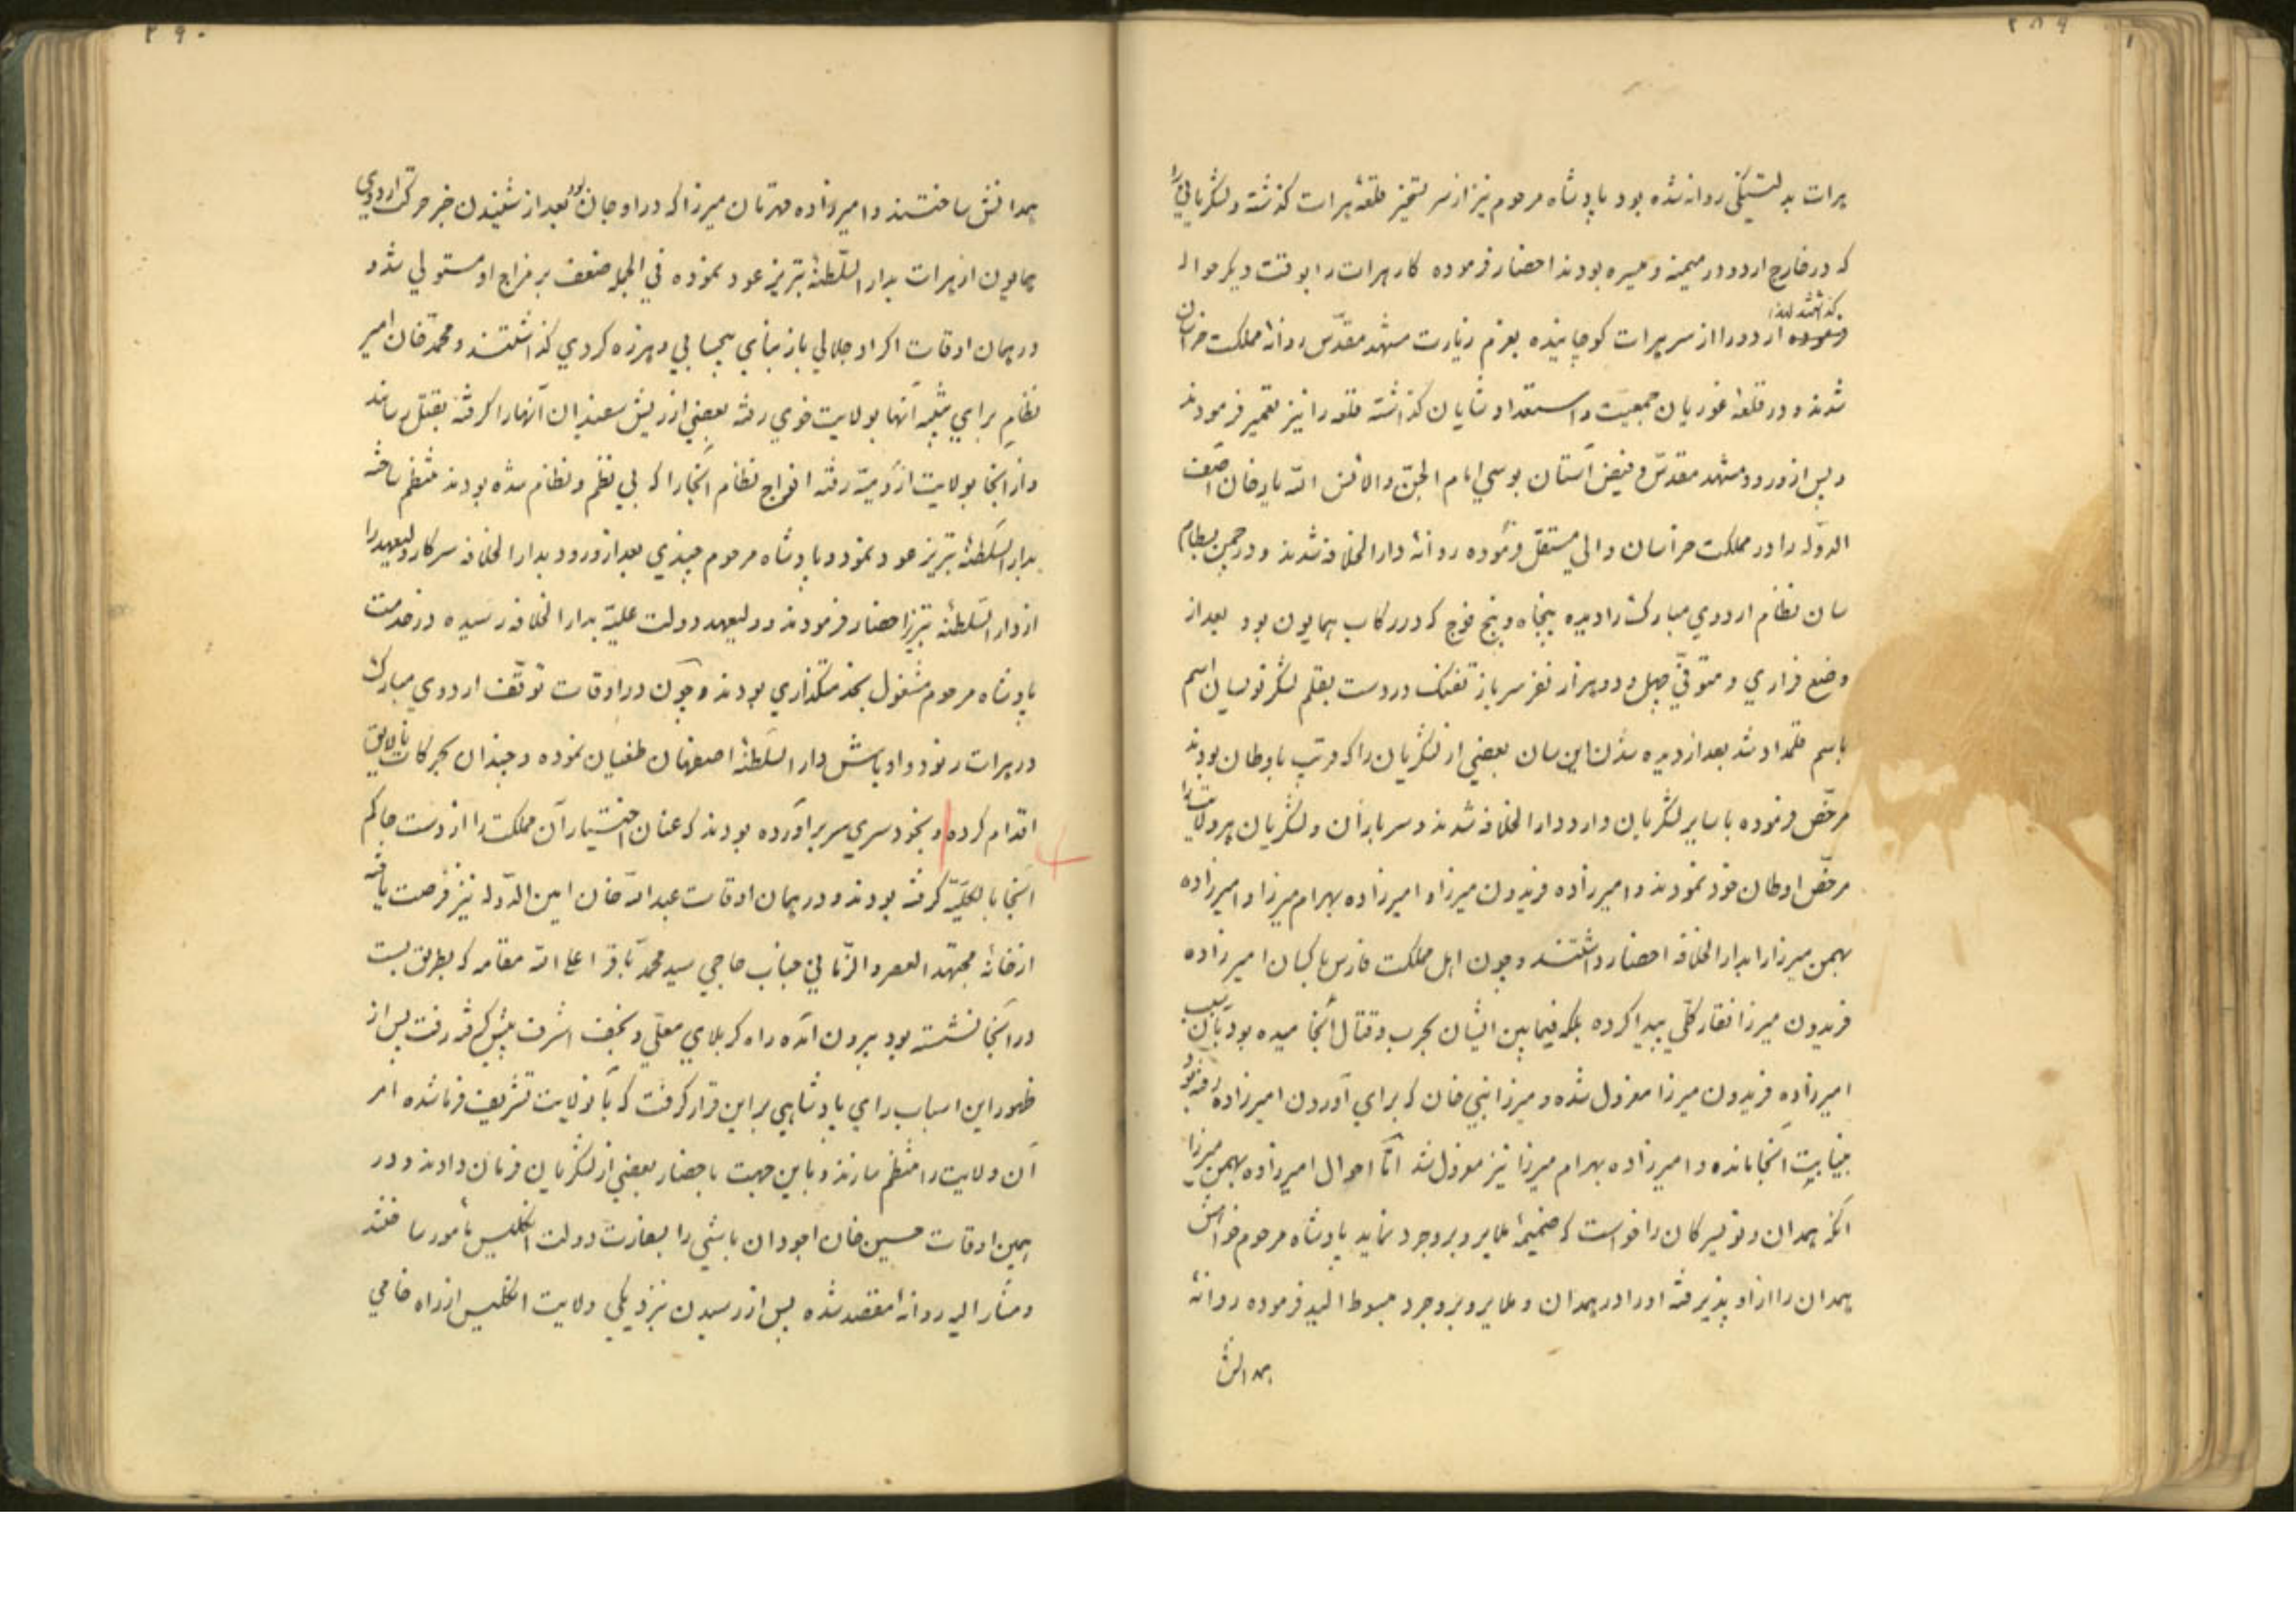 ۲۸۹
هرات بدلتنگی روانه شده بود پادشاه مرحوم نیز از سر تسخیر قلعهٔ هرات گذشته و لشگریانی را
که در خارج اردو در میمنه و میسره بودند احضار فرموده کار هرات را بوقت دیگر حواله
فرموده اردو را از سر هرات کوچانیده بعزم زیارت مشهد مقدّس روانهٔ مملکت خراسان
شدند و در قلعهٔ غوریان جمعیّت و استعداد شایان گذاشته قلعه را نیز تعمیر فرمودند
و پس از ورود مشهد مقدّس و فیض آستان بوسي امام الجنّ والانس الله یار خان آصف
الدوّله را در مملکت خراسان والي مستقلّ فرموده روانهٔ دار الخلافه شدند و در چمن بسطام
سان نظام اردوي مبارک را دیده پنجاه و پنج فوج که در رکاب همایون بود بعد از
وضع فراري و متوفّي چهل و دو هزار نفر سرباز تفنک در دست بقلم لشگر نویسان اسم
باسم قلمداد شد بعد از دیده شدن این سان بعضي از لشگریان را که قریب باوطان بودند
مرخّص فرموده با سایر لشگریان وارد دار الخلافه شدند و سربازان و لشگریان هر ولایت را
مرخّص اوطان خود نمودند و امیرزاده فریدون میرزا و امیرزاده بهرام میرزا و امیرزاده
بهمن میرزا را بدار الخلافه احضار داشتند و چون اهل مملکت فارس با کسان امیرزاده
فریدون میرزا نقار کلّي پیدا کرده بلکه فیما بین ایشان بحرب و قتال انجامیده بود بآن سبب
امیرزاده فریدون میرزا معزول شده و میرزا نبي خان که براي آوردن امیرزاده رفته بود
بنیابت آنجا مانده و امیرزاده بهرام میرزا نیز معزول شد امّا احوال امیرزاده بهمن میرزا
آنکه همدان و تویسرکان را خواست که ضمیمهٔ ملایر و بروجرد نماید پادشاه مرحوم خواهش
همدان را از او پذیرفته او را در همدان و ملایر و بروجرد مبسوط الید فرموده روانهٔ
همدانش
۲۹۰
همدانش ساختند و امیرزاده قهرمان میرزا که در اوجان بود بعد از شنیدن خبر حرکت اردوي
همایون از هرات بدار السّلطنهٔ تبریز عود نموده في الجمله ضعف بر مزاج او مستولي شد و
در همان اوقات اکراد جلالي باز بناي بیحسابي و هرزه کردي گذاشتند و محمّد خان امیر
نظام براي تنبیه آنها بولایت خوي رفته بعضي از ریش سفیدان آنها را گرفته بقتل رساند
و از آنجا بولایت ارومیّه رفته افواج نظام آنجا را که بي نظم و نظام شده بودند منتظم ساخته
بدار السّلطنهٔ تبریز عود نمود و پادشاه مرحوم چندي بعد از ورود بدار الخلافه سرکار ولیعهد را
از دار السّلطنهٔ تبریز احضار فرمودند و ولیعهد دولت علیّه بدار الخلافه رسیده در خدمت
پادشاه مرحوم مشغول بخدمتگذاري بودند و چون در اوقات توقّف اردوي مبارک
در هرات رنود و اوباش دار السّلطنهٔ اصفهان طغیان نموده و چندان بحرکات نالایق
اقدام کرده و بخود سري سر برآورده بودند که عنان اختیار آن مملکت را از دست حاکم
آنجا بالکلیّه گرفته بودند و در همان اوقات عبدالله خان امین الدّوله نیز فرصت یافته
از خانهٔ مجتهد العصر و الزّماني جناب حاجي سید محمّد باقر اعلي الله مقامه که بطریق بست
در آنجا نشسته بود بیرون آمده راه کربلاي معلّي و نجف اشرف پیش گرفته رفت پس از
ظهور این اسباب راي پادشاهي بر این قرار گرفت که بآنولایت تشریف فرما شده امر
آن ولایت را منتظم سازند و باین جهت باحضار بعضي از لشگریان فرمان دادند و در
همین اوقات حسین خان اجودان باشي را بسفارت دولت انگلیس مأمور ساختند
و مشار الیه روانهٔ مقصد شده پس از رسیدن بنزدیکي ولایت انگلیس از راه خامي